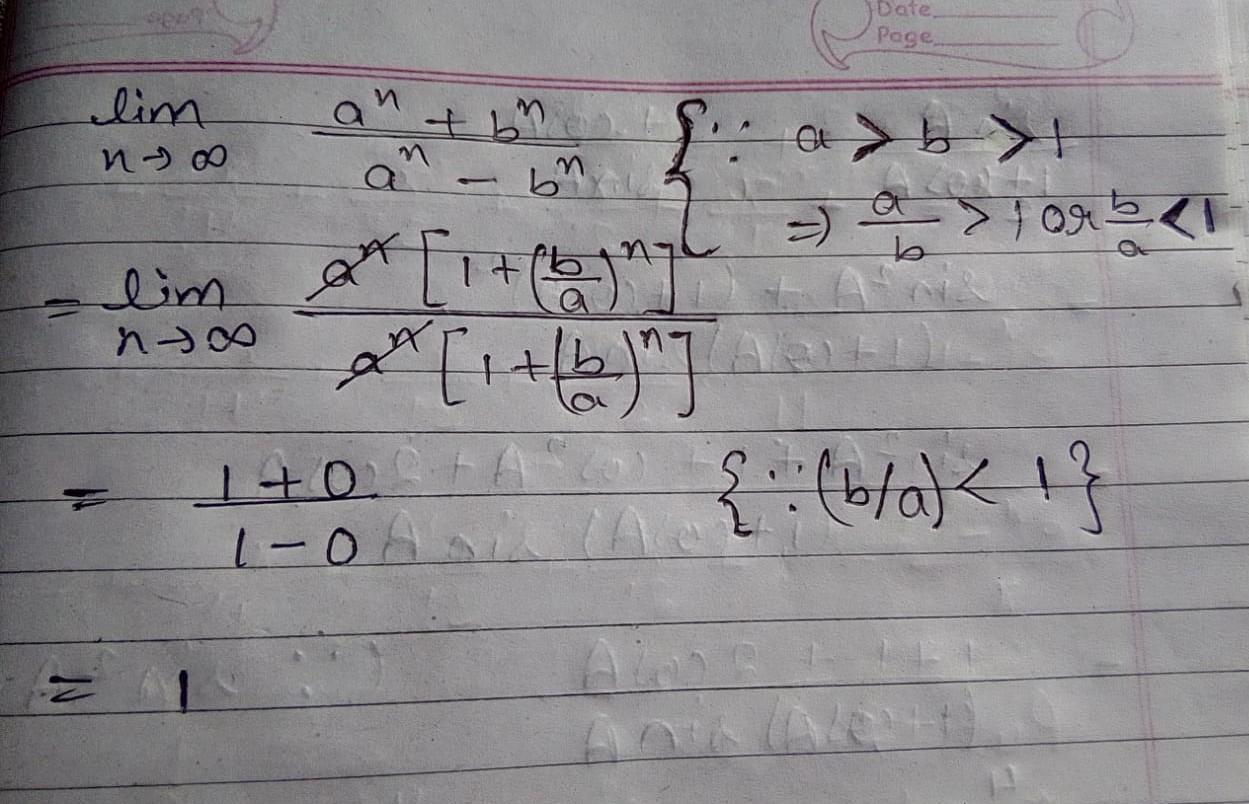 Date
Page
lim n→∞ (aⁿ + bⁿ)/(aⁿ - bⁿ) {∵ a > b > 1
⇒ a/b > 1 or b/a < 1
= lim n→∞ aⁿ [1 + (b/a)ⁿ] / aⁿ [1 + (b/a)ⁿ]
= (1 + 0)/(1 - 0) {∵ (b/a) < 1}
= 1